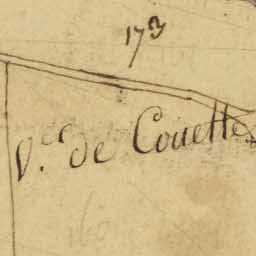 173
V.ce de Couette